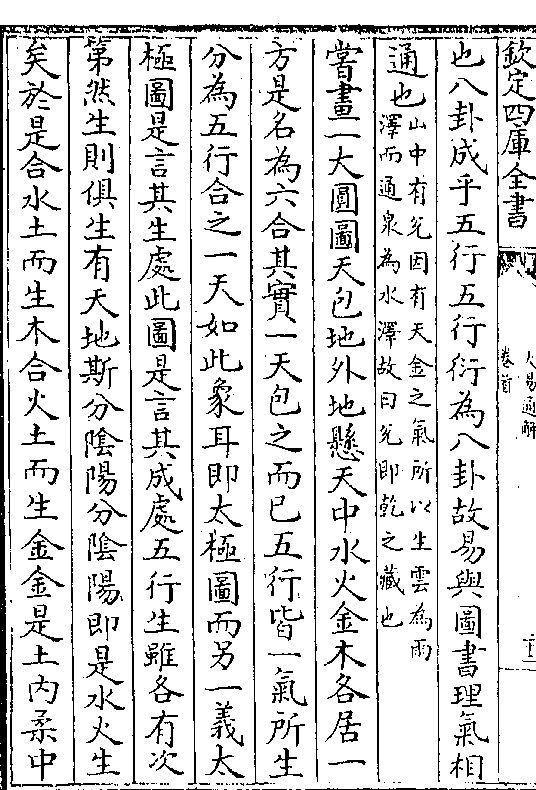 欽定四庫全書
大易通解
卷首
十三
也八卦成乎五行五行衍為八卦故易與圖書理氣相
通也山中有兌因有天金之氣所以生雲為雨
澤而通泉為水澤故曰兌即乾之藏也
嘗畫一大圓圖天包地外地懸天中水火金木各居一
方是名為六合其實一天包之而已五行皆一氣所生
分為五行合之一天如此象耳即太極圖而另一義太
極圖是言其生處此圖是言其成處五行生雖各有次
第然生則俱生有天地斯分陰陽分陰陽即是水火生
矣於是合水土而生木合火土而生金金是土內柔中